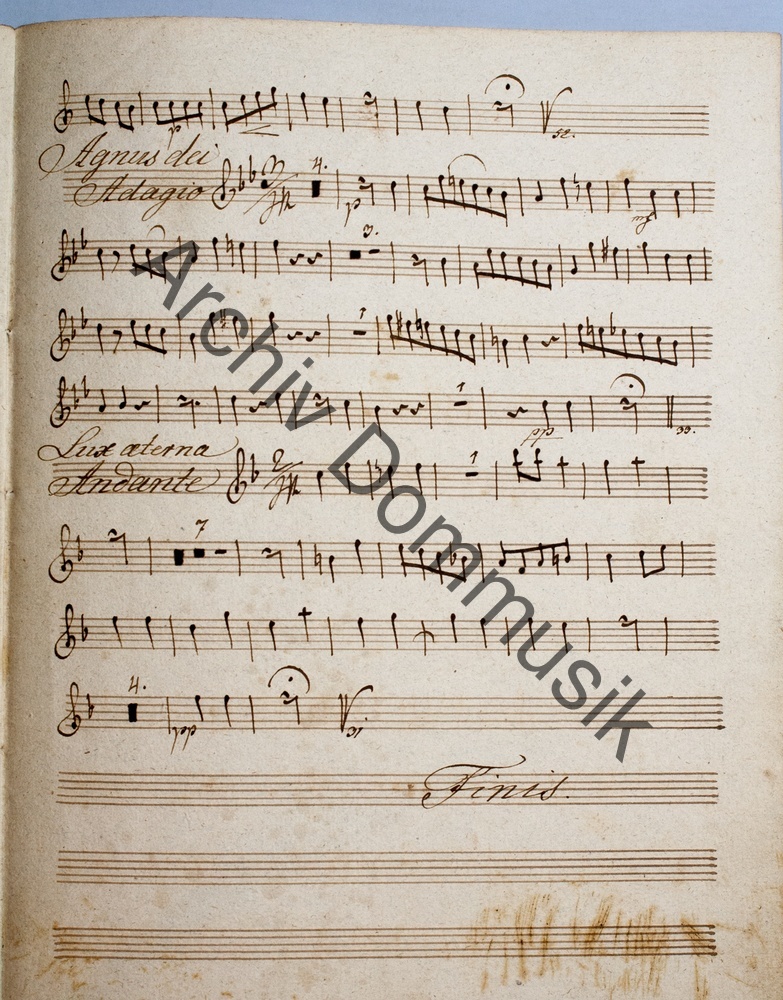 p
52.
Agnus dei
Adagio 4. p
mf
3.
1
1
pp 33.
Lux æterna
Andante 2 1
7
4. pp 31
Finis.
Archiv Dommusik